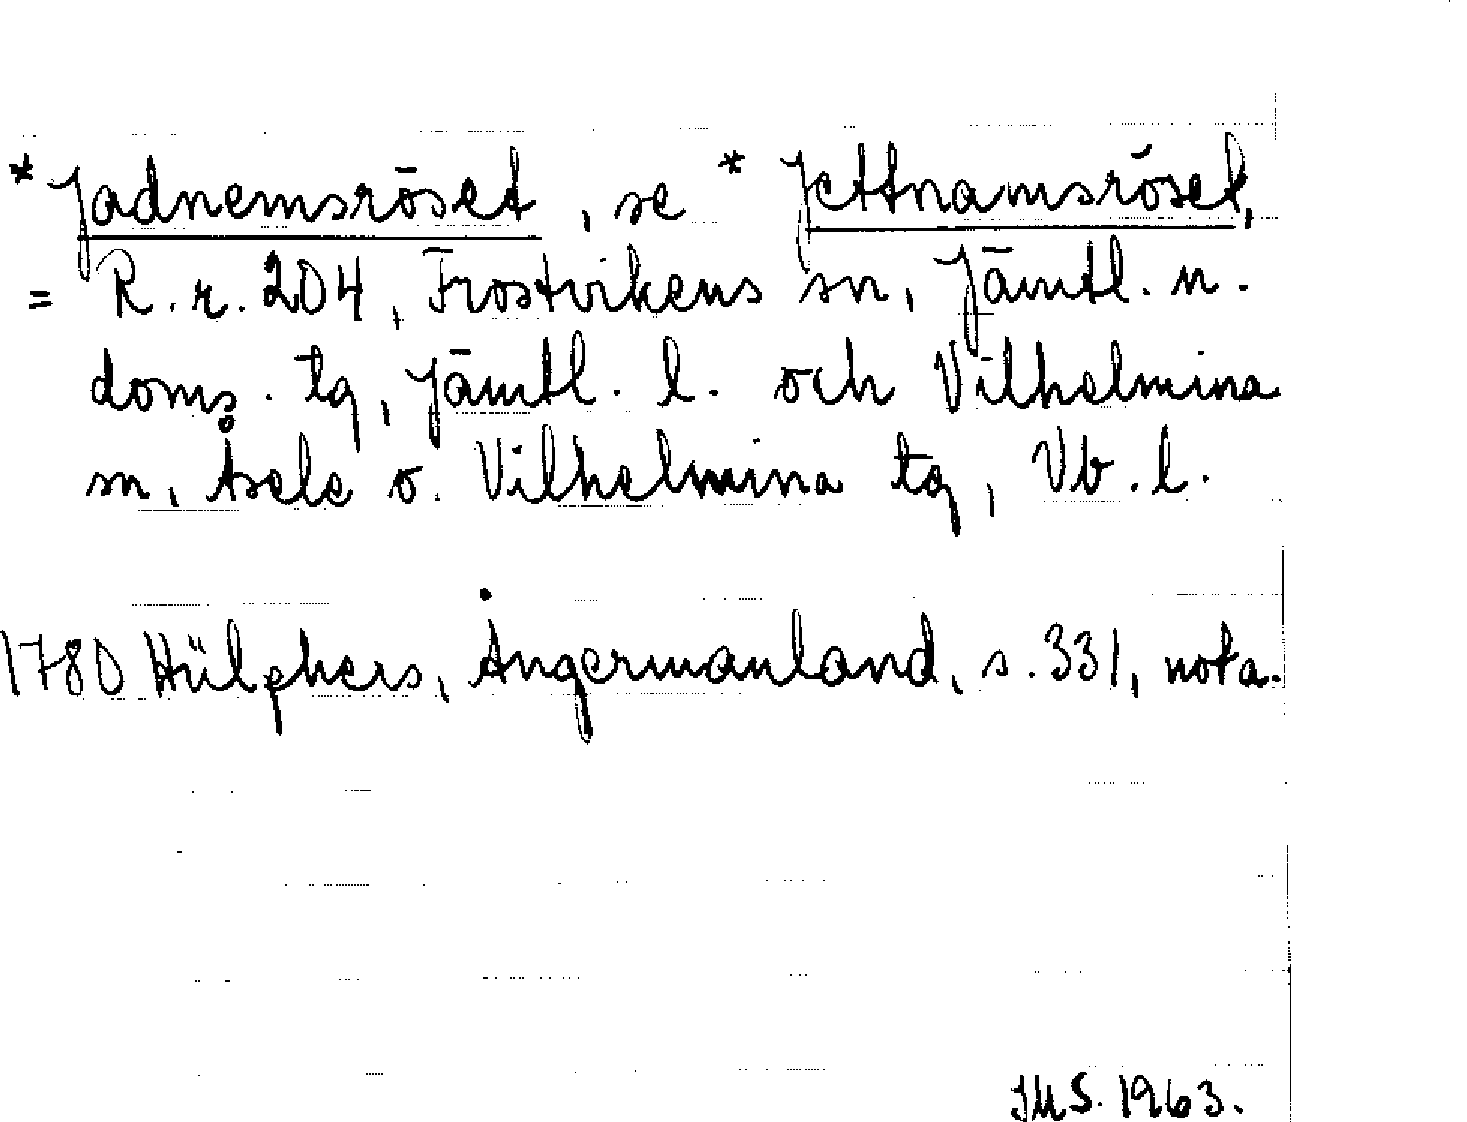 *Jadnemsröset, se *Jettnamsröset,
= R.r. 204, Frostvikens sn, Jämtl. n.
doms. tg, Jämtl. l. och Vilhelmina
sn, Åsele o. Vilhelmina tg, Vb. l.
1780 Hülphers, Ångermanland, s. 331, nota.
JMS. 1963.